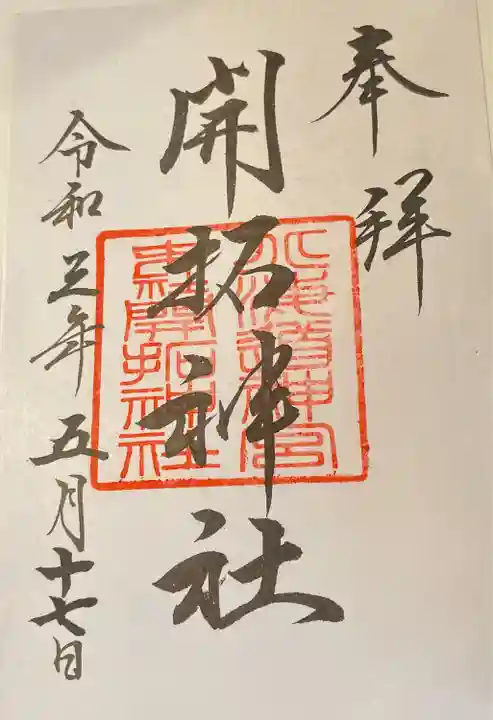 奉拝
開拓神社
北海道神宮
開拓神社
令和三年五月十七日